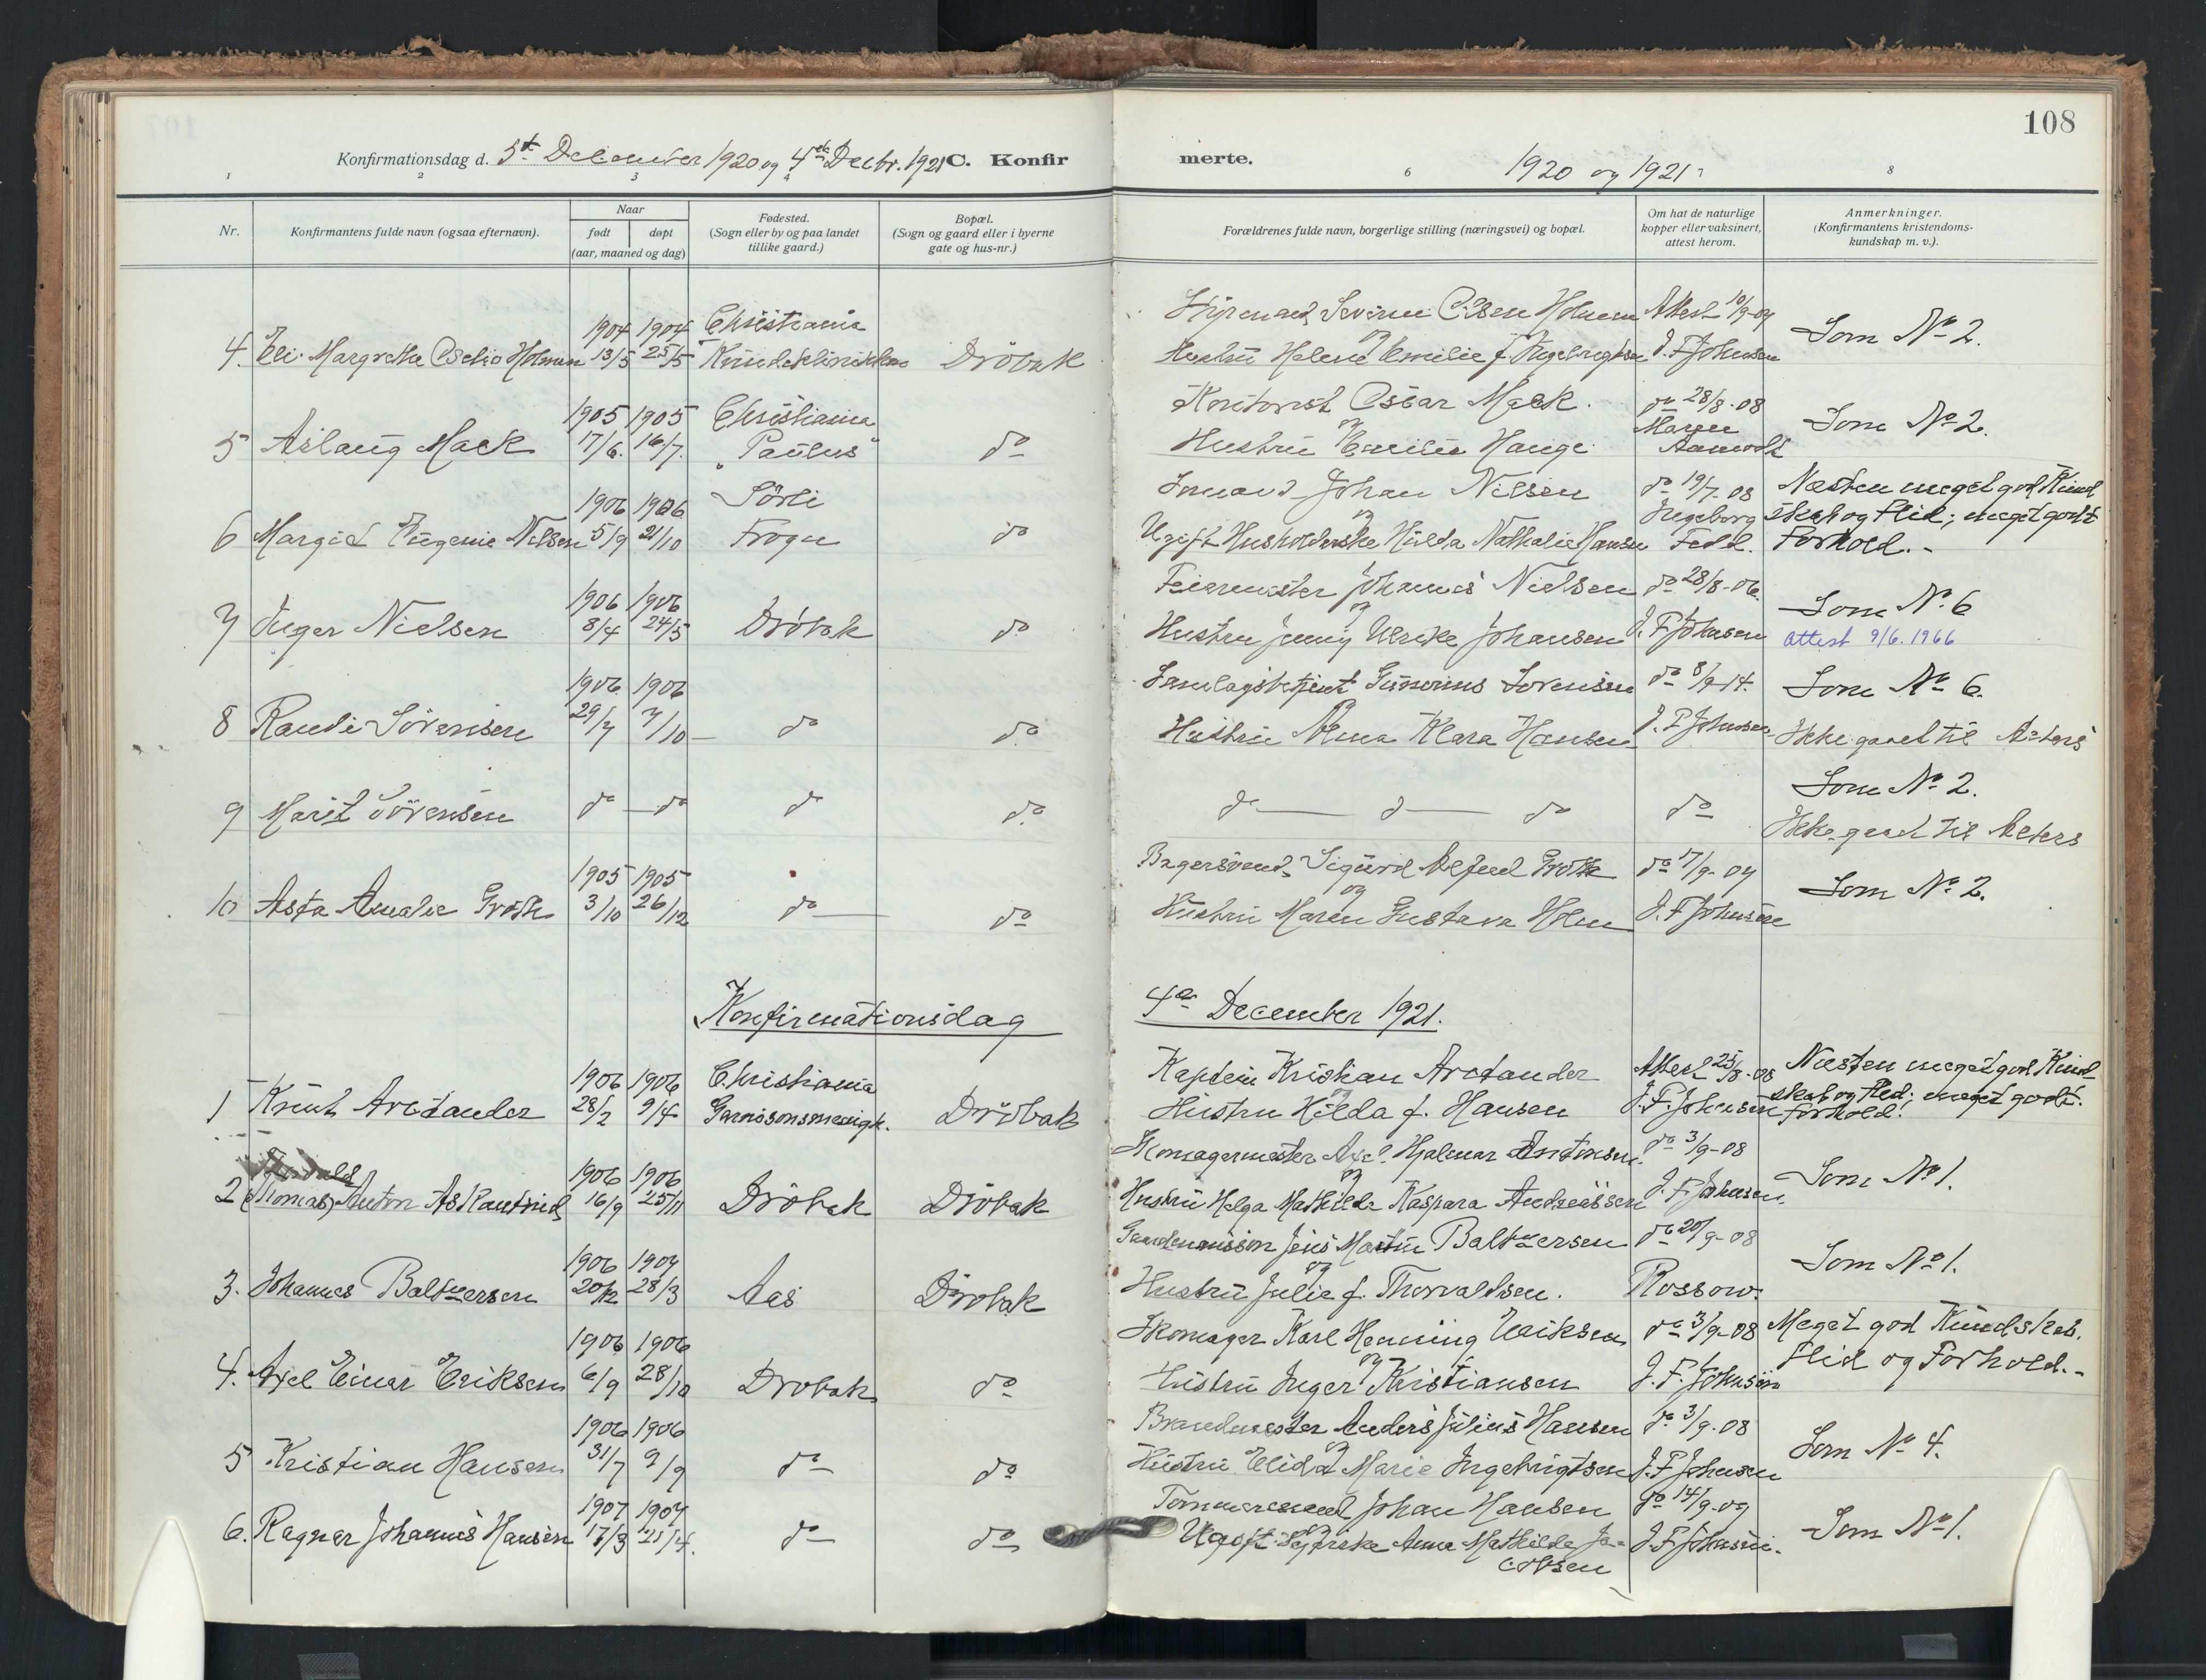 108
Konfirmationsdag d. 5te December 1920 og 4de Decbr. 1921 C. Konfir
merte. 1920 og 1921
1 2 3 4 6 7 8
Nr.
Konfirmantens fulde navn (ogsaa efternavn).
Naar
født døpt
(aar, maaned og dag)
Fødested.
(Sogn eller by og paa landet
tillike gaard.)
Bopæl.
(Sogn og gaard eller i byerne
gate og hus-nr.)
Forældrenes fulde navn, borgerlige stilling (næringsvei) og bopæl.
Om hat de naturlige
kopper eller vaksinert,
attest herom.
Anmerkninger.
(Konfirmantens kristendoms-
kundskap m. v.).
1904 1904 Christiania
4. Margrethe Holmen 13/5 25/5 Drøbak
Severin Olsen Holmen Attest 10/9-04
og
Hustru Helene Emilie f. Ingebrigtsen J. F. Johnsen
Som No 2.
1905 1905 Christiania
5 Aslaug Mack 17/6. 16/7. "Paulus" do
Kontorist Oscar Mack. do 28/8-08
og Maren
Hustru Emilie Hauge Aamodt
Som No 2.
1906 1906 Sörli
6 Margit Eugenie Nilsen 5/9 21/10 Frogn do
Johan Nilsen do 19/7-08
og Ingeborg
Ugift Husholderske Hulda Nathalie Hansen Fedd.
Næsten meget god Kund
skab og Flid; meget godt
Forhold.-
1906 1906
7 Inger Nielsen 8/4 24/5 Drøbak do
Feiermester Johannes Nielsen do 28/8-06.
og
Hustru Jenny Ulrike Johansen J. F. Johnsen
Som No 6
Attest 9/6. 1966
1906 1906
8 Randi Sörensen 29/7 7/10 do do
Samlagsbetjent Gunerius Sörensen do 8/9-14.
og
Hustru Alma Klara Hansen J. F. Johnsen
Som No 6.
Ikke gaaet til Alters
9 Marit Sörensen do do do do
do do do do
Som No 2.
Ikke gaaet til Alters
1905 1905
10 Asta Amalie Groth 3/10 26/12 do do
Bagersvend Sigurd Groth do 7/9-04
og
Hustru Maren Gustava Holm J. F. Johnsen
Som No 2.
Konfirmationsdag
4de December 1921.
1906 1906 Christiania
1 Knut Arctander 28/2 9/4 Garnisonsmenigh. Drøbak
Kaptein Kristian Arctander Attest 25/8-08
og
Hustru Hilda f. Hansen J. F. Johnsen
Næsten meget god Kund
skab og Flid; meget godt
Forhold.
1906 1906
2 (Thomas) Anton 16/9 25/11 Drøbak Drøbak
Skomagermester Axel Hjalmar Antonsen. do 3/9-08
og
Hustru Helga Mathilde Kaspara Andreassen J. F. Johnsen.
Som No 1.
1906 1907
3. Johannes Baltzersen 20/12 28/3 Aas Drøbak
Jens Martin Baltzersen do 20/9-08
og
Hustru Julie f. Thorvaldsen. Rossow.
Som No 1.
1906 1906
4. Axel Einar Eriksen 6/9 28/10 Drøbak do
Skomager Karl Henning Eriksen do 3/9-08
og
Hustru Inger Kristiansen J. F. Johnsen
Meget god Kundskab.
Flid og Forhold.-
1906 1906
5 Kristian Hansen 31/7 9/9 do do
Brandmester Anders Julius Hansen do 3/9-08
og
Hustru Elida Marie Ingebrigtsen J. F. Johnsen
Som No 4.
1907 1907
6. Ragnar Johannes Hansen 17/3 21/4. do do
Tømmermand Johan Hansen do 14/9-09
og
Ugift Anna Mathilde Ja- J. F. Johnsen.
cobsen
Som No 1.